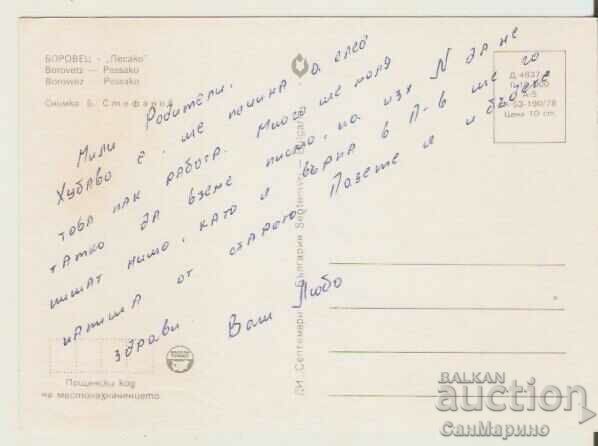 БОРОВЕЦ - „Лесако“
Borovetz — Pessako
Borowez — Pessako
Снимка Б. Стефанов
Д 4637
А-5
Цена 10 ст.
Мили Родители,
Хубаво е, ще почина а след
това пак работа. Много ще моля
татко да вземе писмо, на изх N да не
пишат нищо, като я върна в П-в ще го
от старото Пазете се и бъдете
здрави Ваш Любо
ДИ „Септември“ България Septemvri Bulgaria
Пощенски код
на местоназначението
BALKAN
auction
СанМарино